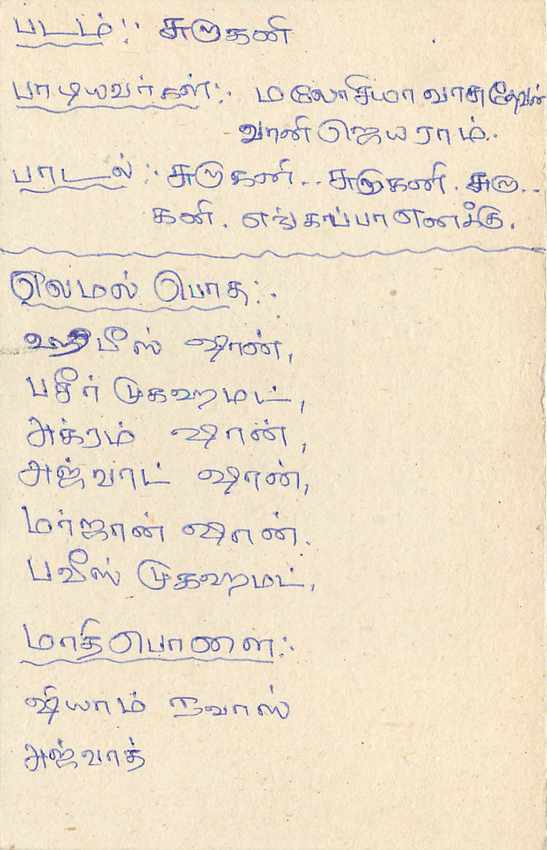 படம்:- சுருகனி
பாடியவர்கள்:- மலேசியா வாசுதேவன்
வானி ஜெயராம்.
பாடல்:- சுருகனி.. சுருகனி. சுரு..
கனி. எங்கப்பா எனக்கு.
ஏலமல் பொத:-
ஹபீஸ் ஷான்,
பசீர் முகஹமட்,
அக்ரம் ஷான்,
அஜ்வாட் ஷான்,
மர்ஜான் ஷான்.
பவீஸ் முகஹமட்,
மாதிபொளை:-
ஷியாம் நவாஸ்
அஜ்வாத்